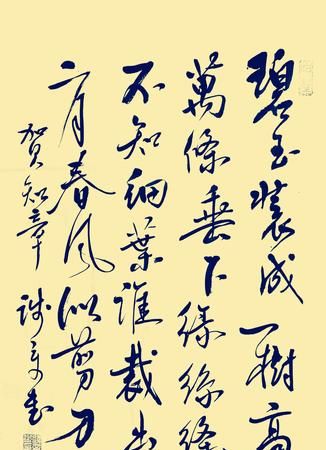 碧玉裝成一樹高
萬條垂下綠絲絛
不知細葉誰裁出
二月春風似剪刀
賀知章 詩